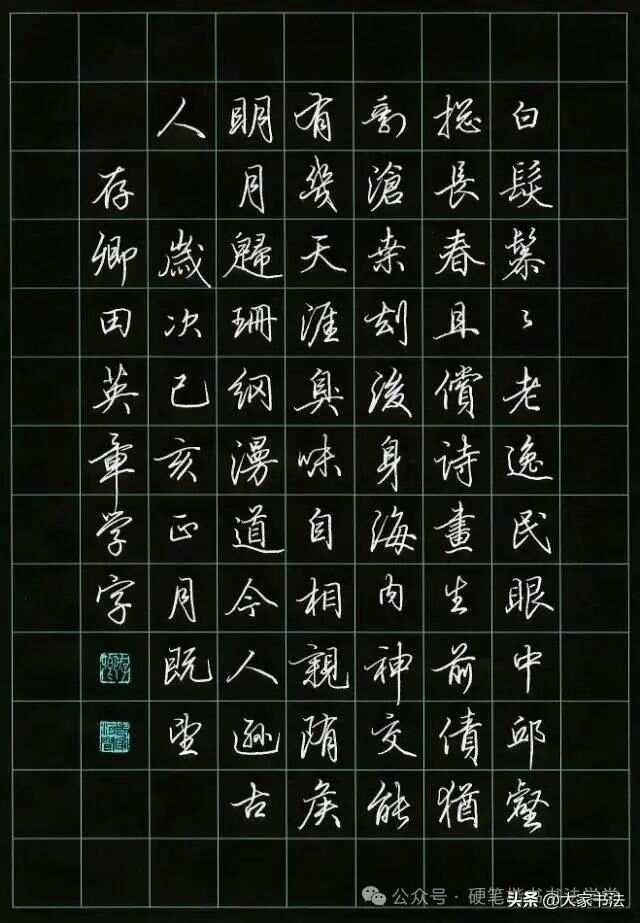 白髮鬖々老逸民眼中邱壑
摠長春且償詩畫生前債猶
剩滄桒刦後身海内神交能
有幾天涯臭味自相親隋矦
明月歸珊網漫道今人遜古
人 歲次己亥正月既望
存卿田英章学字
公众号 · 硬笔楷书书法学堂
头条 @大家书法